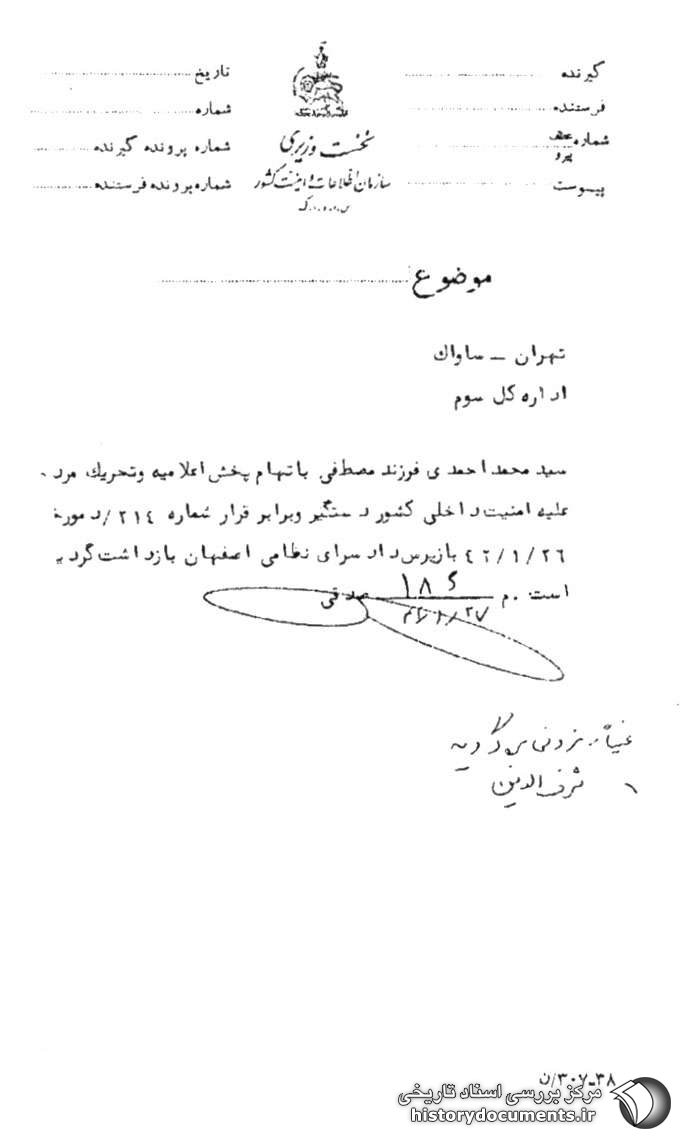 گیرنده
فرستنده
شماره عطف پیرو
پیوست
نخست وزیری
سازمان اطلاعات و امنیت کشور
س.ا.و.ا.ک
تاریخ
شماره
شماره پرونده گیرنده
شماره پرونده فرستنده
موضوع
تهران – ساواك
اداره کل سوم
سید محمد احمدی فرزند مصطفی باتهام پخش اعلامیه وتحریك مرد
علیه امنیت داخلی کشور دستگیر وبرابر قرار شماره ٢١٤/د مورخ
٤٢/١/٢٦ بازپرس دادسرای نظامی اصفهان بازداشت گردید
است .م ١٨٤ صدقی
٤٢/١/٢٧
شرف الدین
٣٨-٣٠٧/ن
مرکز بررسی اسناد تاریخی
historydocuments.ir